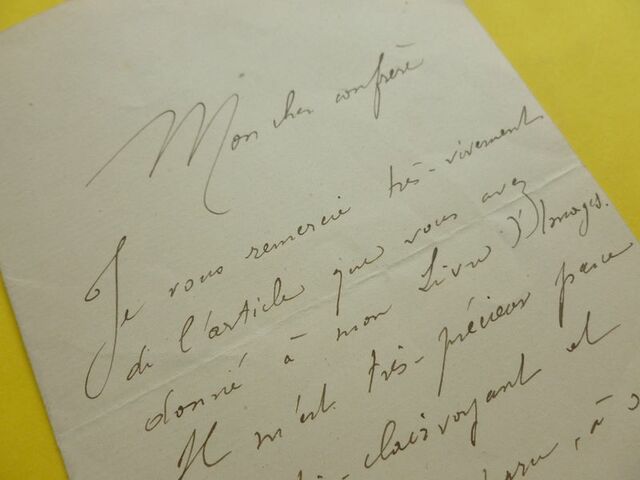 Mon cher confrère
Je vous remercie très-vivement
de l'article que vous avez
donné à mon Livre d'Images.
Il m'est très-précieux parce
clairvoyant et
, à